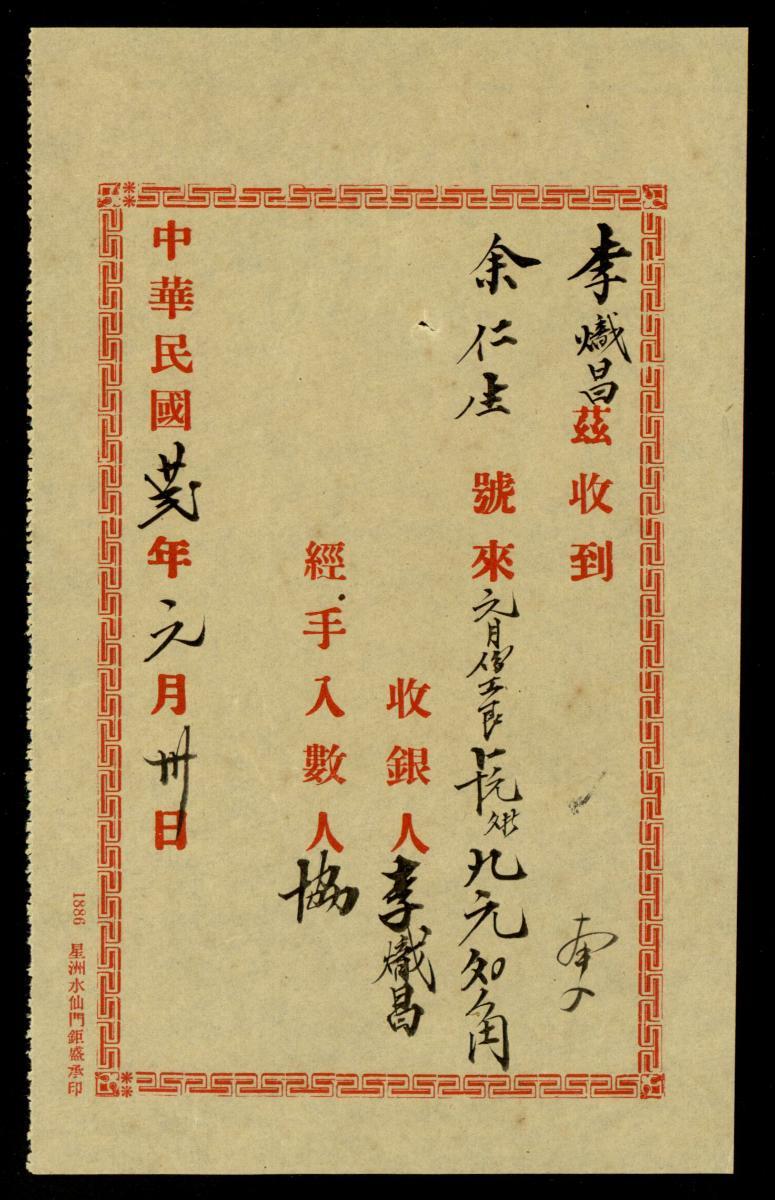 李熾昌茲收到
余仁生號來元月份工艮 九元 角
收銀人李熾昌
經手入數人協
中華民國 年元月卅日
1886 星洲水仙門鉅盛承印